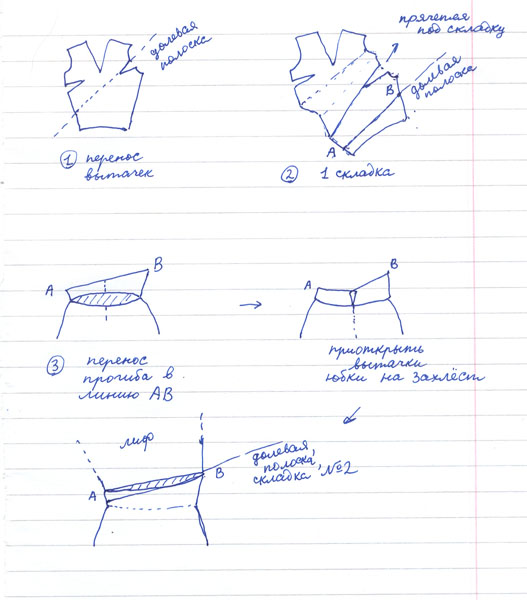 долевая
полоска
1 перенос
вытачек
прячется
под складку
B
долевая
полоска
A
2 1 складка
A
B
3 перенос
прогиба в
линию AB
A
B
приоткрыть
вытачки
юбки на захлёст
лиф
A
B
долевая
полоска,
складка №2